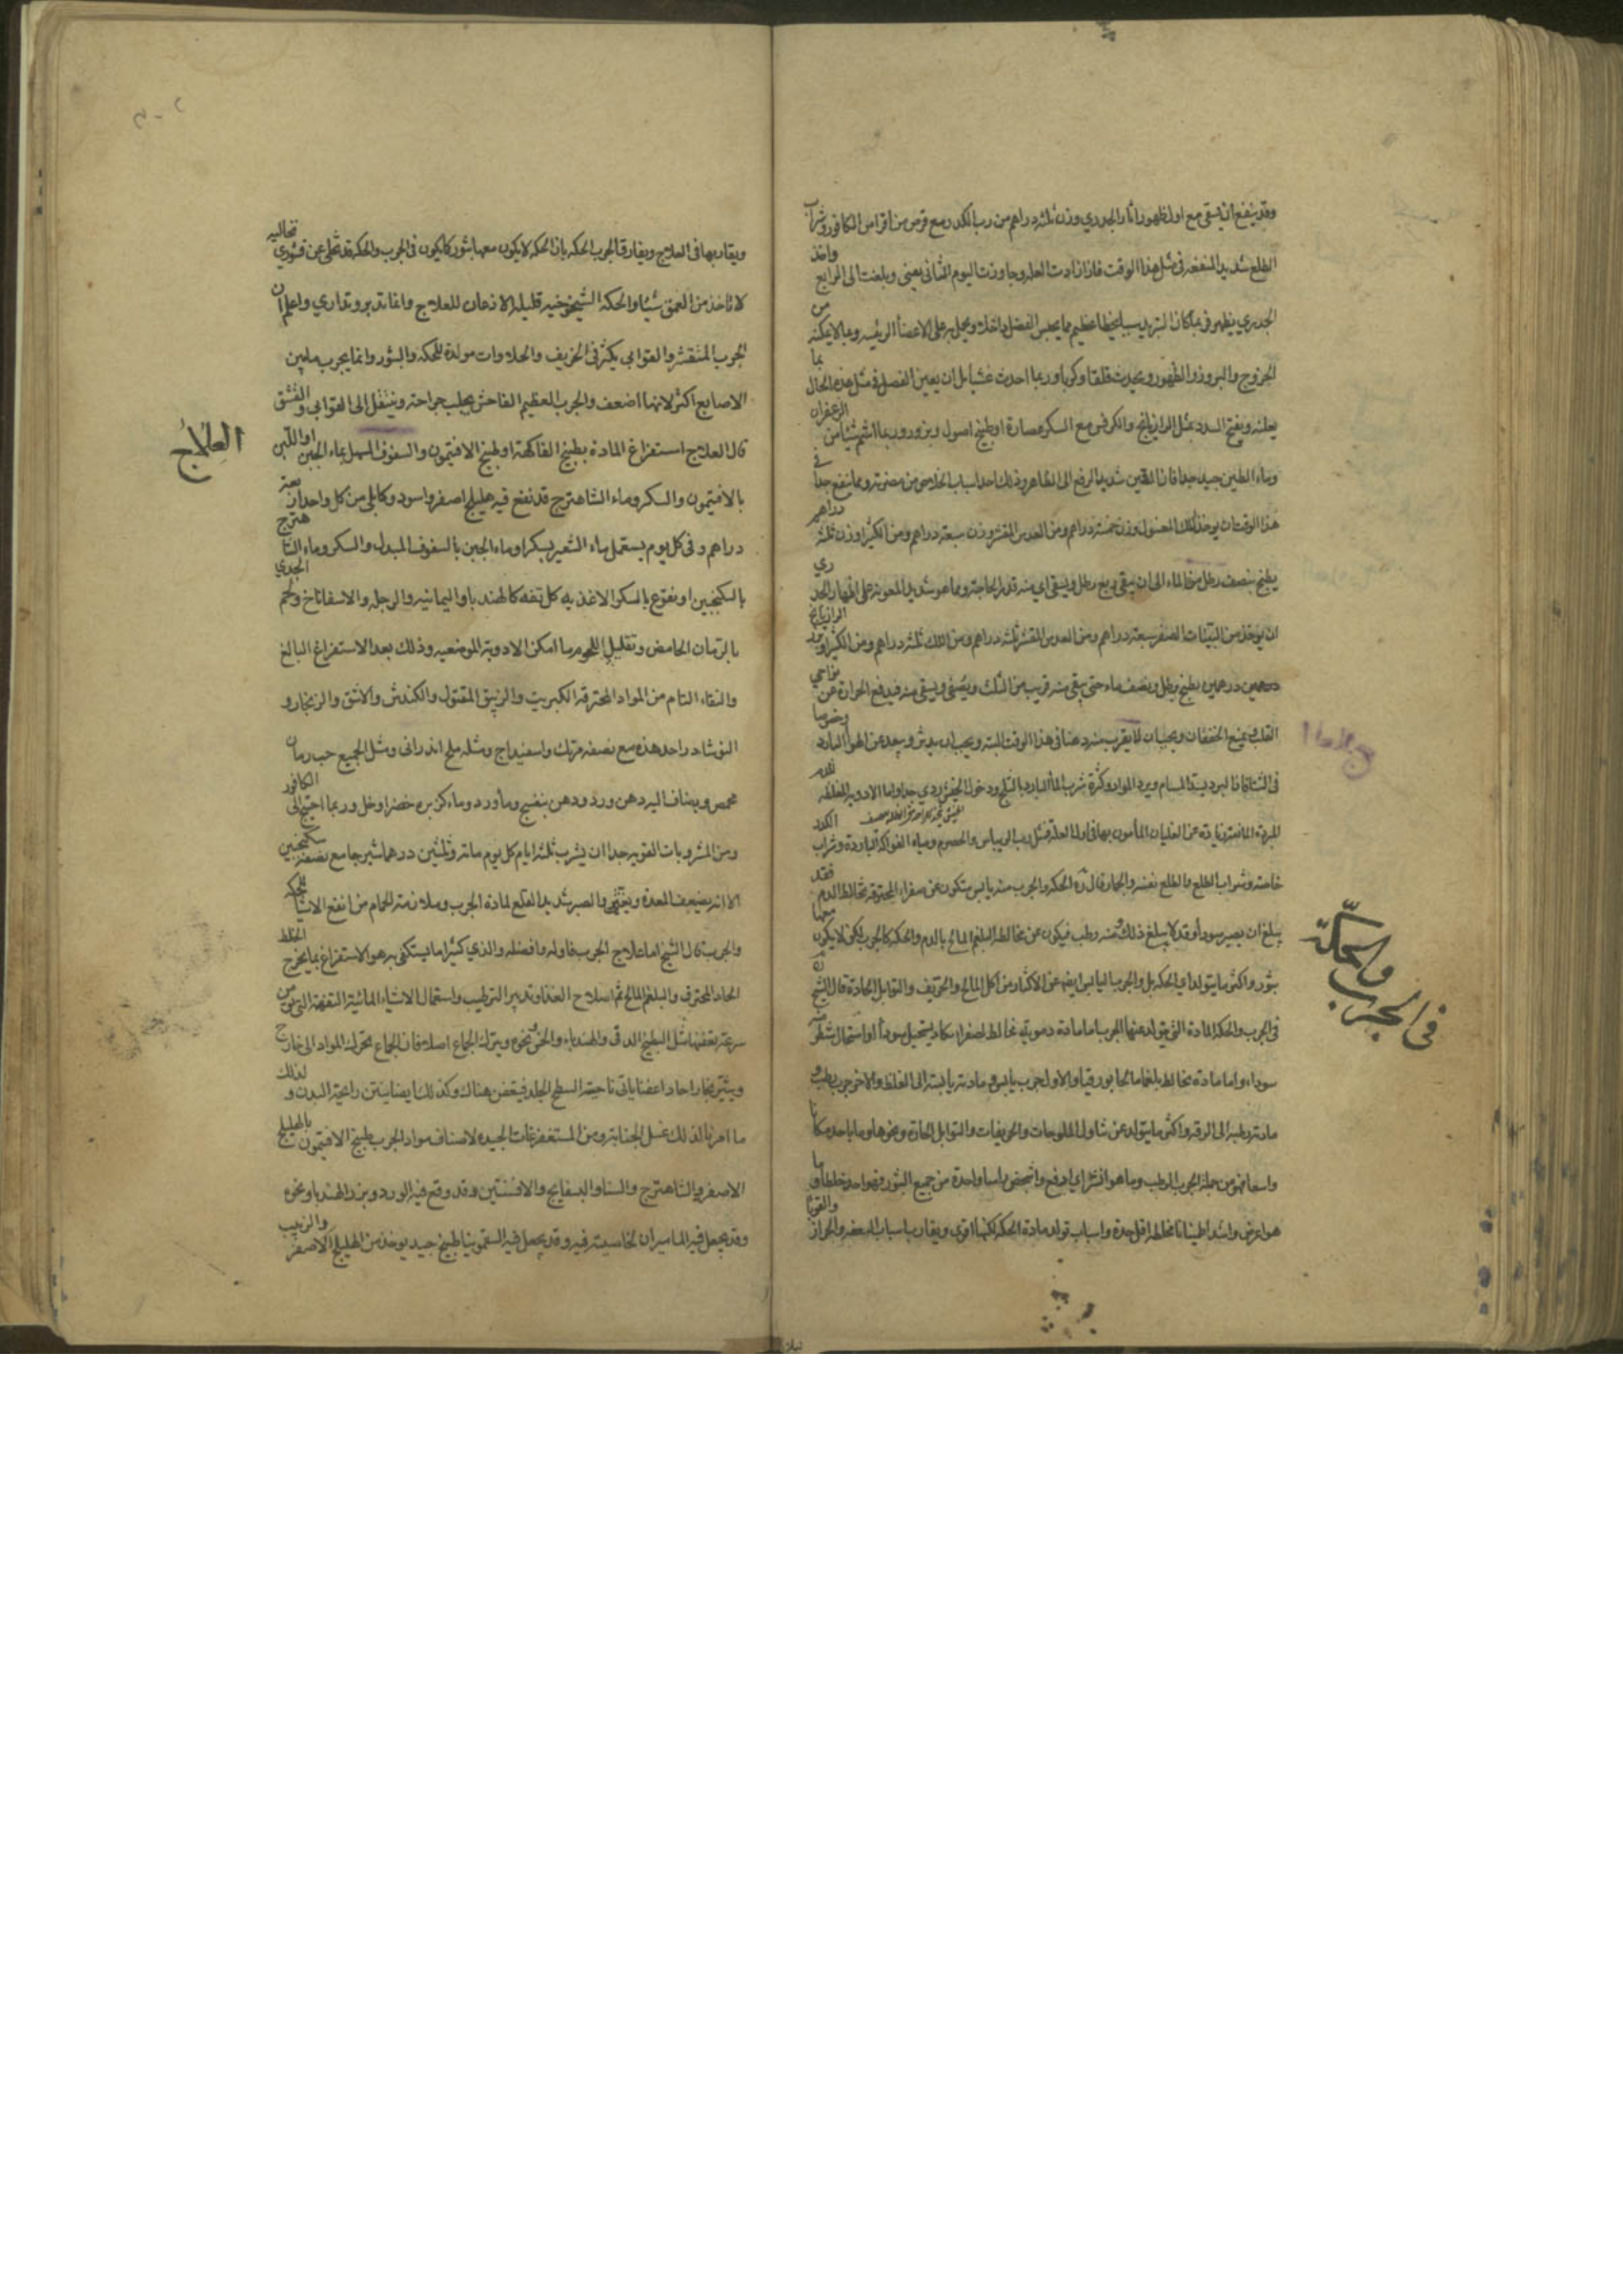 وقد ينفع ان يسقى مع اول ظهور اثار الجدري وزن ثلثه دراهم من رب الكدر مع قرص من اقراص الكافور وشراب
الطلع شديد المنفعه فى مثل هذا الوقت فاذا زادت العله وجاوزت اليوم الثانى يعنى وبلغت الى الرابع واخذ
الجدري يظهر فربما كان التبريد سببا لخطا عظيم مما يحبس الفضل داخلا ويحمل به على الاعضا الرئيسه وما لا يمكنه من
الخروج والبروز والظهور ويحدث قلقا وكربا وربما احدث غشيا بل ان يعين الفضل فى مثل هذه الحال بما
يغليه ويفتح السدد مثل الرازيانج والكرفس مع السكر عصارة او طبيخ اصول وبزور وربما اشم شيئا من الزعفران
وماء الطين جيد جدا فان التين شديد الدفع الى الظاهر وذلك احد اسباب الخلاص من مضرته ومما ينفع جدا فى
هذا الوقت ان يوخذ اللك المغسول وزن خمسة دراهم ومن العدس المقشر وزن سبعة دراهم ومن الكثيرا وزن ثلثه دراهم
يطبخ بنصف رطل من الماء الى ان يبقى ربع رطل ويسقى اي منه قدر الحاجة ومما هو شديد المعونة على اظهار الجدري
ان يوخذ من التينات الصفر سبعة دراهم ومن العدس المقشر ثلثه دراهم ومن اللك ثلثه دراهم ومن الكثيرا وبزر الرازيانج
درهمين درهمين يطبخ برطل ونصف ماء حتى يبقى منه قريب من الثلث ويصفى ويسقى منه فيدفع الحرارة عن نواحي
القلب ويمنع الخفقان ويجب ان لا يقرب منه دهنا فى هذا الوقت البته ويجب ان يدثر ويبعد عن الهوا البارد وخصوصا
فى الشتا فان البرد يسد المسام ويرد المواد وكثرة شرب الماء البارد بالثلج ودخول الخيش ردي جدا واما الادويه المغلظه للدم
المبردة المانعة زيادة عن الغليان المأمون بها فى اول العلة فمثل رب الريباس والحصرم ومياه الفواكه الباردة وشراب الكدر
خاصته وشراب الطلع والطلع نفسه والجمار قال ره الحكه والجرب منه يابس يتكون عن صفراء محترقه تخالط الدم فقد
يبلغ ان يصير سودا وقد لا يبلغ ذلك ومنه رطب فيكون عن مخالطة البلغم المالح بالدم والحكه كالجرب لكن لا يكون معها
بثور واكثر ما يتولد اي الحكه بل والجرب اليابس ايضا عن الاكثار من اكل المالح والحريف والتوابل الحادة قال الشيخ ره
فى الجرب والحكه المادة التى يتولد عنها الجرب اما مادة دمويه تخالط لصفرا يكاد يستحيل سودا او استحال شطر منه
سوداء واما مادة تخالط بلغما مالحا بورقيا والاول جرب يابس ومادته يابسة الى الغلظ والاخر جرب رطب و
مادته رطبه الى الرقه واكثر ما يتولد عن تناول الملوحات والحريفات والتوابل الحارة ونحوها وما ياخذ مكانا
واسعا فهو من جملة الجرب الرطب وما هو انشز اي ارفع واشخص راسا واحدة من جميع البثور فهو احد خلطا وما
هو اعرض واشد اطمينانا فخلطه اقل حدة واسباب تولد مادة الحكه لكنها اقوى ويقارب اسباب السعفه والحزاز والقوبا
فى الجرب والحكّة
ويقاربها فى العلاج ويفارق الجرب الحكه بان الحكه لا يكون معها بثور كما يكون فى الجرب والحكه قد تخلى عن قشور نخاليه
لا تاخذ من العمق شيئا والحكه الشيخوخيه قليله الاذعان للعلاج وانما تدبر وتداري واعلم ان
الجرب المتقشر والقوابى يكثر فى الخريف والحلاوات مولدة للحكه والبثور وانما يجرب ما بين
الاصابع اكثر لانها اضعف والجرب العظيم الفاحش يجلب جراحة وينتقل الى القوابى والقشق
قال العلاج استفراغ المادة بطبيخ الفاكهة او طبيخ الافتيمون والسفوف المسهل بماء الجبن او اللبن
العِلاجُ
بالافتيمون والسكر وماء الشاهترج قد نقع فيه هليلج اصفر واسود وكابلى من كل واحد اربعة
دراهم وفى كل يوم يستعمل ماء الشعير بسكر او ماء الجبن بالسفوف المبدل والسكر وماء الشاهترج
بالسكنجبين او نقوع بالسكر الاغذيه كل تفه كالهندبا واليمانيه والرجله والاسفاناخ ولحم الجدي
بالرمان الحامض وتقليل اللحوم ما امكن الادوية الموضعيه وذلك بعد الاستفراغ البالغ
والنقاء التام من المواد المحترقه الكبريت والزيبق المقتول والكندش والاشق والزنجار و
النوشادر احد هذه مع نصفه مرتك واسفيداج ومثله ملح اندرانى ومثل الجميع حب رمان
محمص ويضاف اليه دهن ورد ودهن بنفسج وماء ورد وماء كزبره خضرا وخل وربما احتيج الى الكافور
ومن المشروبات القويه جدا ان يشرب ثلثه ايام كل يوم مائة وثلثين درهما شيرجا مع نصفه سكنجبين
الا انه يضعف المعدة ويغثى والصبر شديد القلع لمادة الجرب وملازمة الحمام من انفع الاشيا للحكه
والجرب قال الشيخ اما علاج الجرب فاوله وافضله والذي كثيرا ما يستكفى به هو الاستفراغ بما يخرج الخلط
الحاد المحترق والبلغم المالح ثم اصلاح الغذا وتدبير الترطيب واستعمال الاشياء المائية التفهة التى يومن
سرعة تعفنها مثل البطيخ الدقى والهندباء والخس ونحوه ويترك الجماع اصلا فان الجماع يحرك المواد الى خارج
ويثير بخارا حادا عفنا ياتى ناحية السطح الجلد فيعفن هناك وكذلك ايضا ينتن رايحة البدن ولذلك
ما امرنا لذلك غسل الجنابة ومن المستفرغات الجيده لاصناف مواد الجرب طبيخ الافتيمون بالهليلج
الاصفر والشاهترج والسنا والبسفايج والافسنتين وقد وقع فيه الورد وبزر الهندبا ونحوه
وقد يجعل فيه الماميران لخاصيته فيه وقد يجعل فيه السقمونيا طبيخ جيد يوخذ من الهليلج الاصفر والزبيب